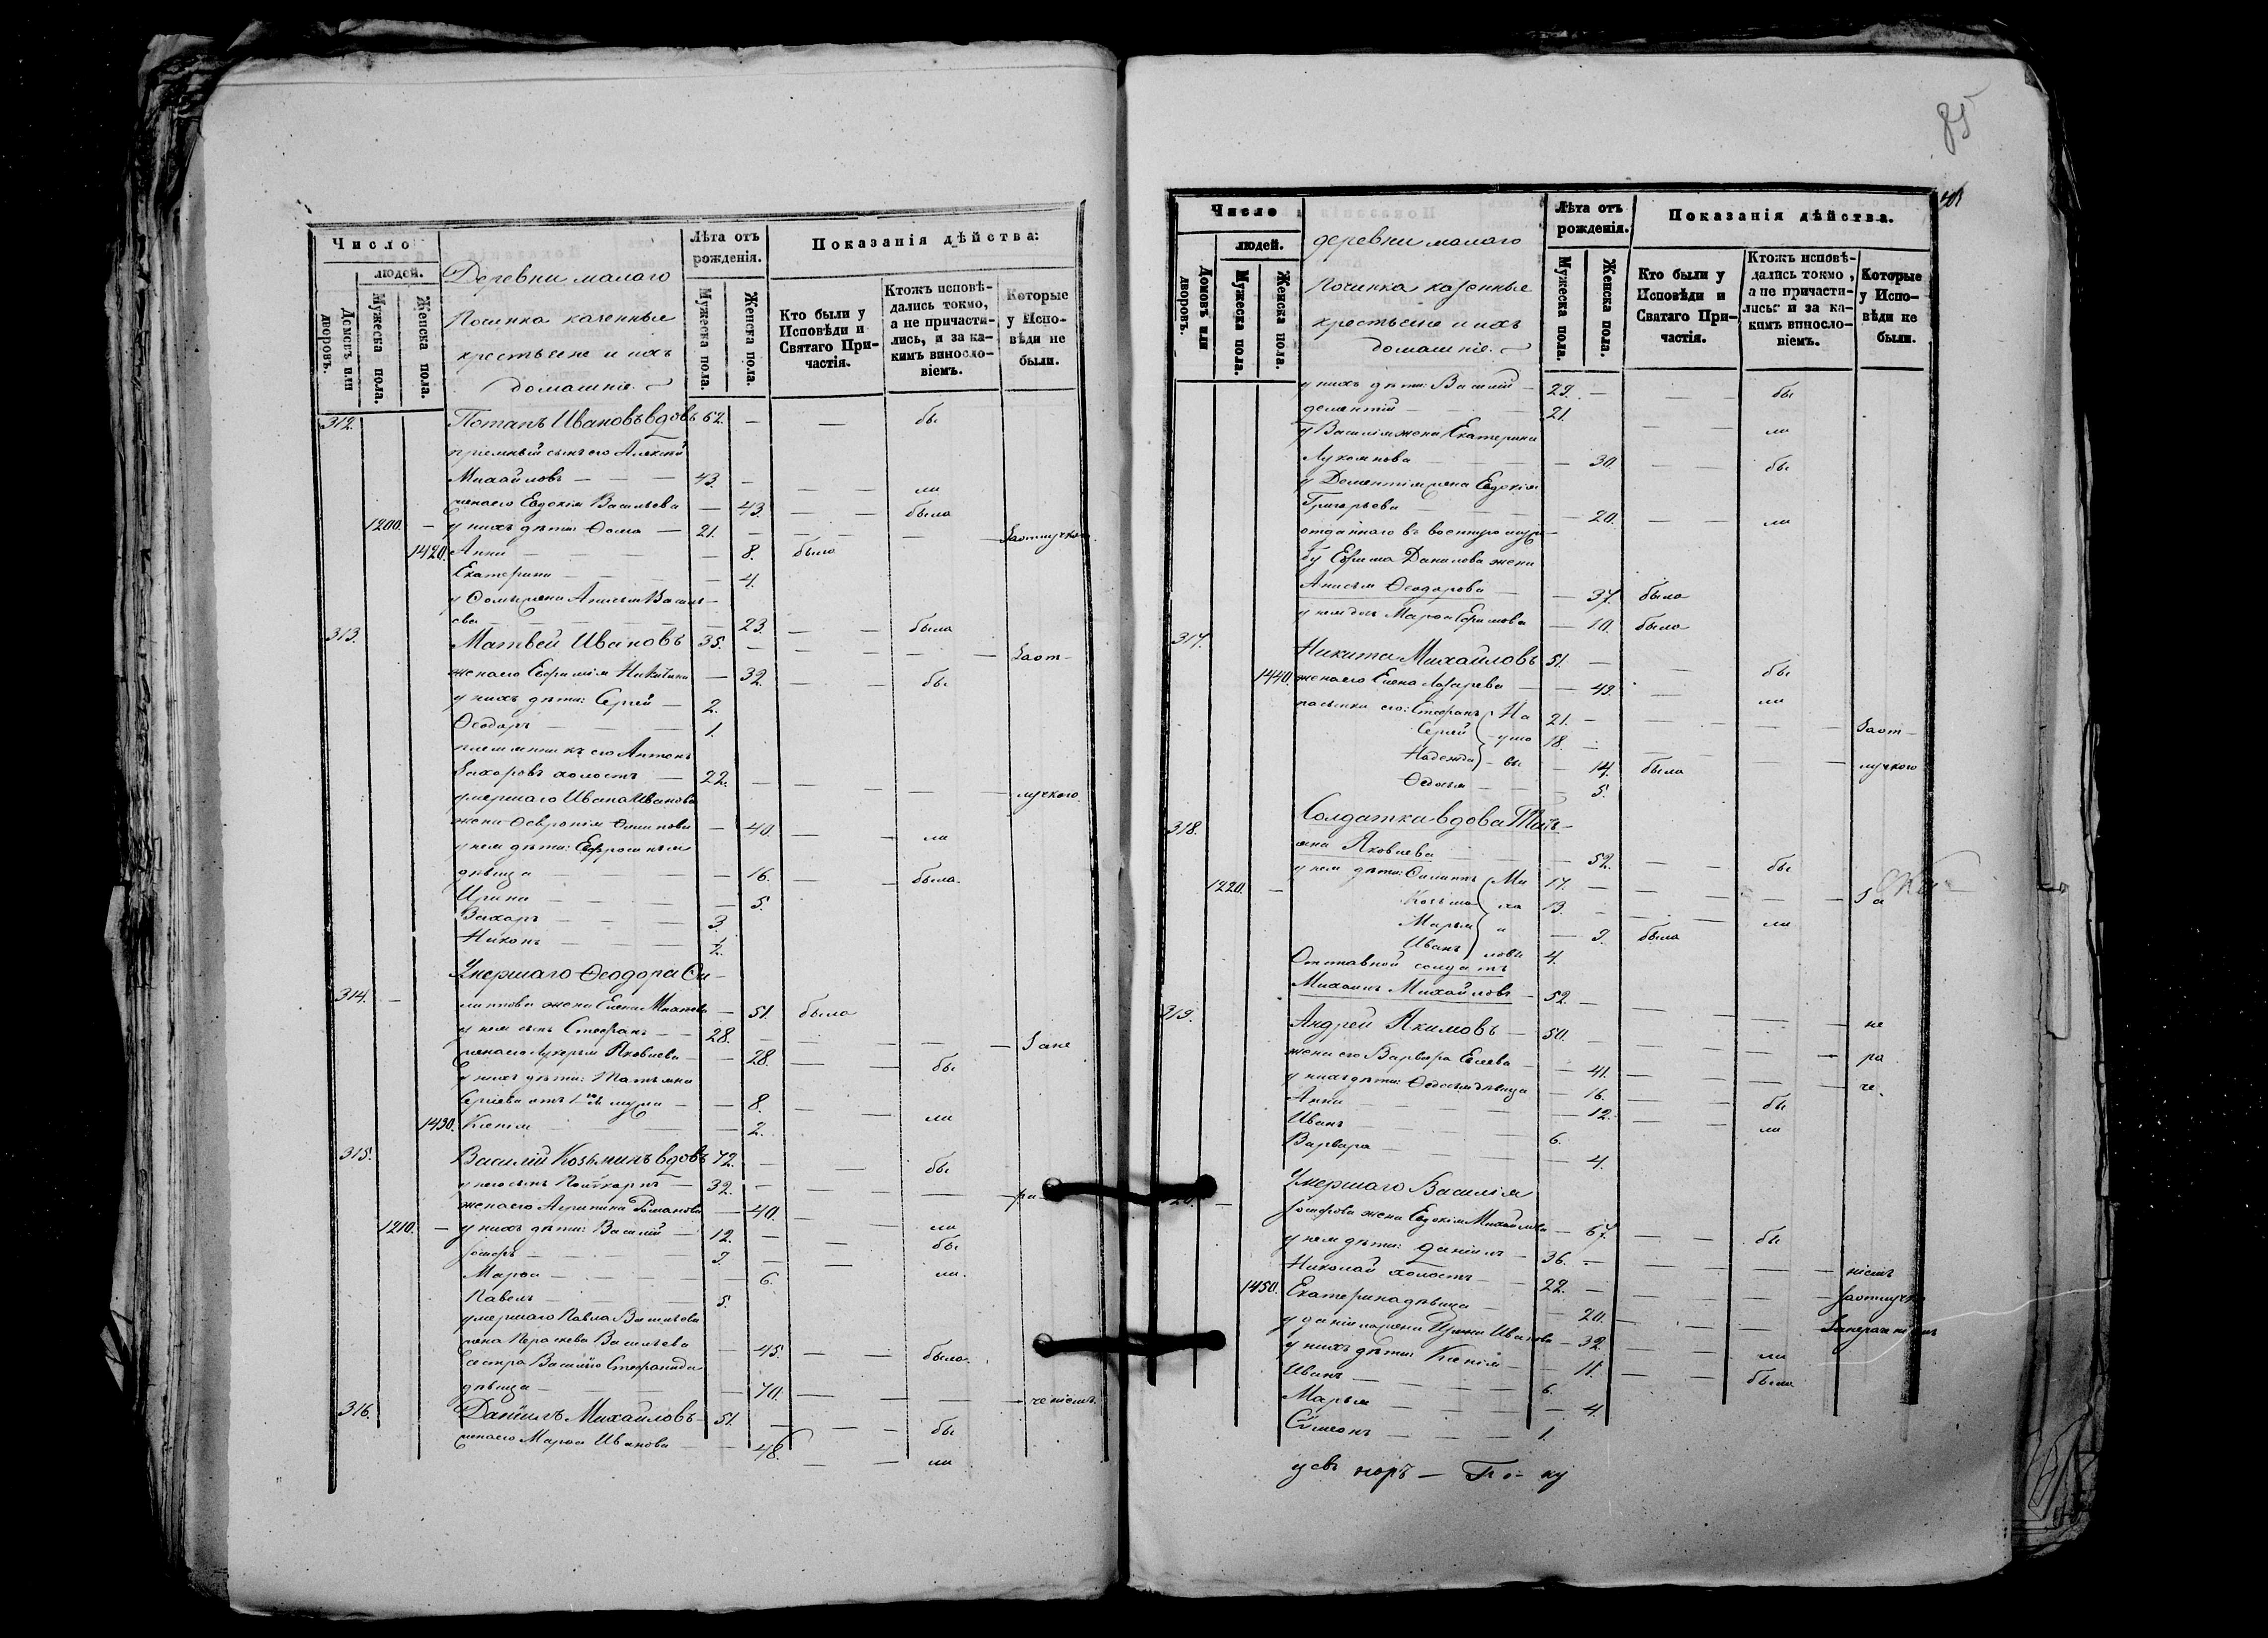 Число
людей.
Домовъ или дворовъ.
Мужеска пола.
Женска пола.
Деревни малаго
Починка казенные
крестьяне и ихъ
домашніе.
Лѣта отъ рожденія.
Мужеска пола.
Женска пола.
Показанія дѣйства:
Кто были у Исповѣди и Святаго Причастія.
Ктожъ исповѣдались токмо, а не причастились, и за какимъ винословіемъ.
Которые у Исповѣди не были.
312. Потапъ Ивановъ вдовъ 62. — — бы
пріемный сынъ его Алексѣй
Михайловъ — 43. — — ли
жена его Евдокія Васильева — 43. — была
1200. у нихъ дѣти: Ѳома — 21. — — — За отлучкою
1420. Анна — 8. была
Екатерина — 4.
у Ѳомы жена Анисья Василь-
ева — 23. — была
313. Матвей Ивановъ 35. — — — За от-
жена его Евфимія Никитина — 32. — бы
у нихъ дѣти: Сергѣй — 2.
Ѳеодоръ — 1.
племянникъ его Антонъ
Захаровъ холостъ — 22. — — — лучкою.
умершаго Ивана Иванова
жена Ѳевронія Филипова — 40 — ли
у нея дѣти: Евфросинья
дѣвица — 16. — была
Ирина — 5.
Захаръ — 3.
Никонъ — ½.
Умершаго Ѳеодора Фи-
314. липпова жена Елена — 51. была
у нея сынъ Стефанъ — 28. — — — За не
жена его Лукерья Яковлева — 28. — бы
у нихъ дѣти: Татьяна
Сергіева отъ 1-го мужа — 8. — ли
1430. Ксенія — 2.
315. Василій Козьминъ вдовъ 72. — — бы
у него сынъ Поликарпъ — 32. — — — ра
жена его Агрипина Романова — 40. — ли
1210. у нихъ дѣти: Василій — 12. — — бы
Іосифъ — 9. — — ли.
Марѳа — 6.
Павелъ — 5.
умершаго Павла Васильева
жена Параскева Васильева — 45. — была.
Сестра Василію Стефанида
дѣвица — 70. — — — ченіемъ.
316. Даніилъ Михайловъ 51. — — бы
жена его Марѳа Иванова — 48. — ли
85
Число
людей.
Домовъ или дворовъ.
Мужеска пола.
Женска пола.
деревни малаго
Починка казенные
крестьяне и ихъ
домашніе.
Лѣта отъ рожденія.
Мужеска пола.
Женска пола.
Показанія дѣйства.
Кто были у Исповѣди и Святаго Причастія.
Ктожъ исповѣдались токмо, а не причастились и за какимъ винословіемъ.
Которые у Исповѣди не были.
у нихъ дѣти: Василій — 29. — — бы
Дементій — 21. — — ли
у Василія жена Екатерина
— 30. — бы
у Дементія жена Евдокія
Григорьева — 20. — ли
отданнаго въ военную служ-
бу Ефима Данилова жена
Анисья Ѳеодорова — 37. была
у нея дочь Марѳа Ефимова — 10. была
317. Никита Михайловъ 51. — — бы
1440. жена его Елена Лазарева — 49. — ли
пасынки его: Стефанъ На 21. — — — За от-
Сергѣй умо 18. — — — лучкою
Надежда вы — 14. была
Ѳедосья — 5.
318. Солдатка вдова Тать-
яна Яковлева — 52. — бы
1220. у нея дѣти: Филиппъ Ми 17. — — — За
Козьма ха 13. — — ли
Марья и — 9. была
Иванъ ловы 4.
Отставной солдатъ
Михаилъ Михайловъ — 52. — — — не
319. Андрей Якимовъ — 50. — — — ра
жена его Варвара Елеева — 41. — — че
у нихъ дѣти: Ѳедосья дѣвица — 16. — бы
Анна — 12. — ли
Иванъ — 6.
Варвара — 4.
Умершаго Василія
Іосифова жена Евдокія Михайлова — 67. — бы
у нея дѣти: Даніилъ — 36. — — — ніемъ
Николай холостъ — 22. — — — За отлучкою
1450. Екатерина дѣвица — 20. — — За нераченіемъ
у Даніила жена Ирина Иванова — 32. — ли
у нихъ дѣти: Ксенія — 11. — была
Иванъ — 6.
Марья — 4.
Симеонъ — 1.